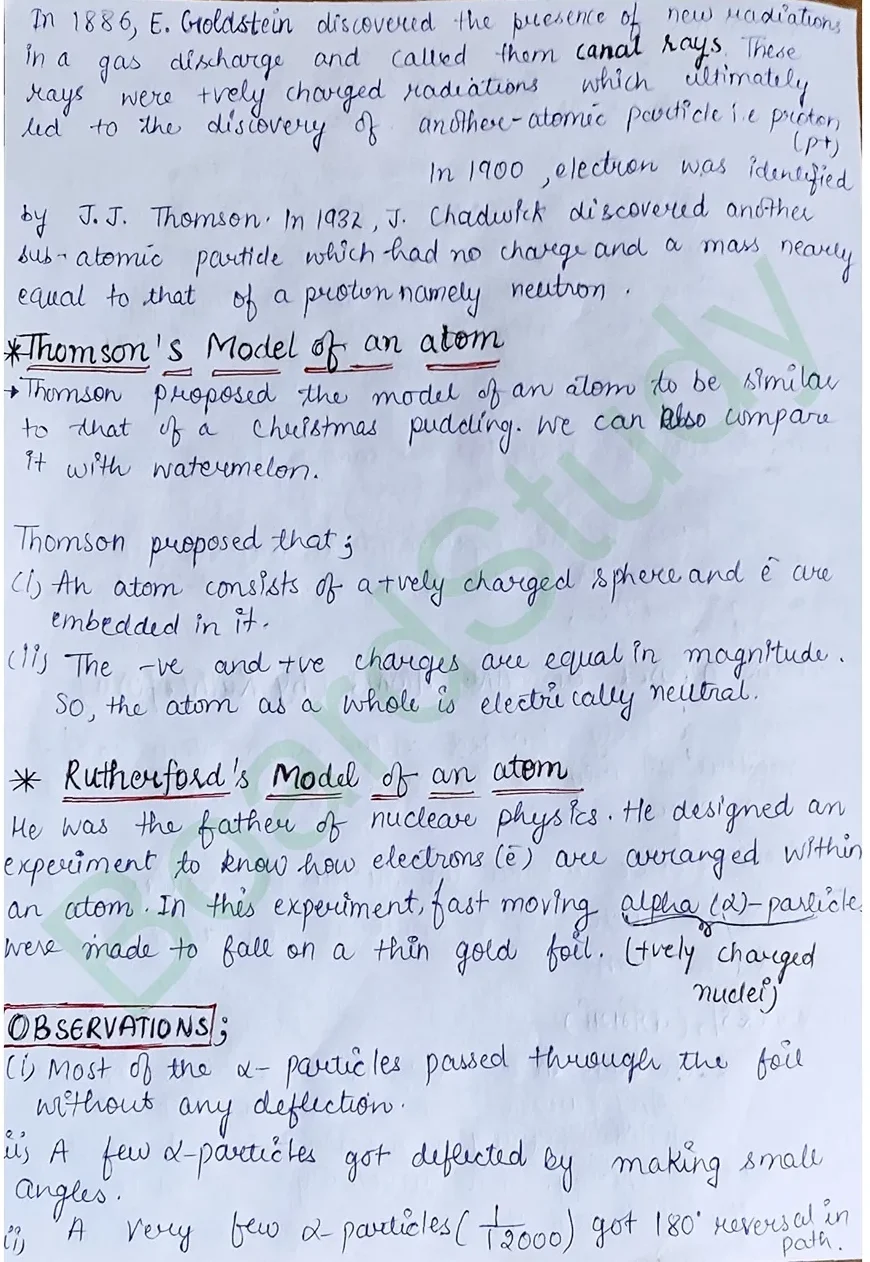 In 1886, E. Goldstein discovered the presence of new radiations
in a gas discharge and called them canal rays. These
rays were +vely charged radiations which ultimately
led to the discovery of another-atomic particle i.e proton
(p+)
In 1900, electron was identified
by J.J. Thomson. In 1932, J. Chadwick discovered another
sub-atomic particle which had no charge and a mass nearly
equal to that of a proton namely neutron.
*Thomson's Model of an atom
→Thomson proposed the model of an atom to be similar
to that of a Christmas pudding. We can also compare
it with watermelon.
Thomson proposed that;
(i) An atom consists of a +vely charged sphere and ē are
embedded in it.
(ii) The -ve and +ve charges are equal in magnitude.
So, the atom as a whole is electrically neutral.
* Rutherford's Model of an atom
He was the father of nuclear physics. He designed an
experiment to know how electrons (ē) are arranged within
an atom. In this experiment, fast moving alpha (α)-particles
were made to fall on a thin gold foil. (+vely charged
nuclei)
OBSERVATIONS;
(i) Most of the α- particles passed through the foil
without any deflection.
ii) A few α-particles got deflected by making small
angles.
iii) A very few α-particles (1/12000) got 180° reversal in
path.
BoardStudy